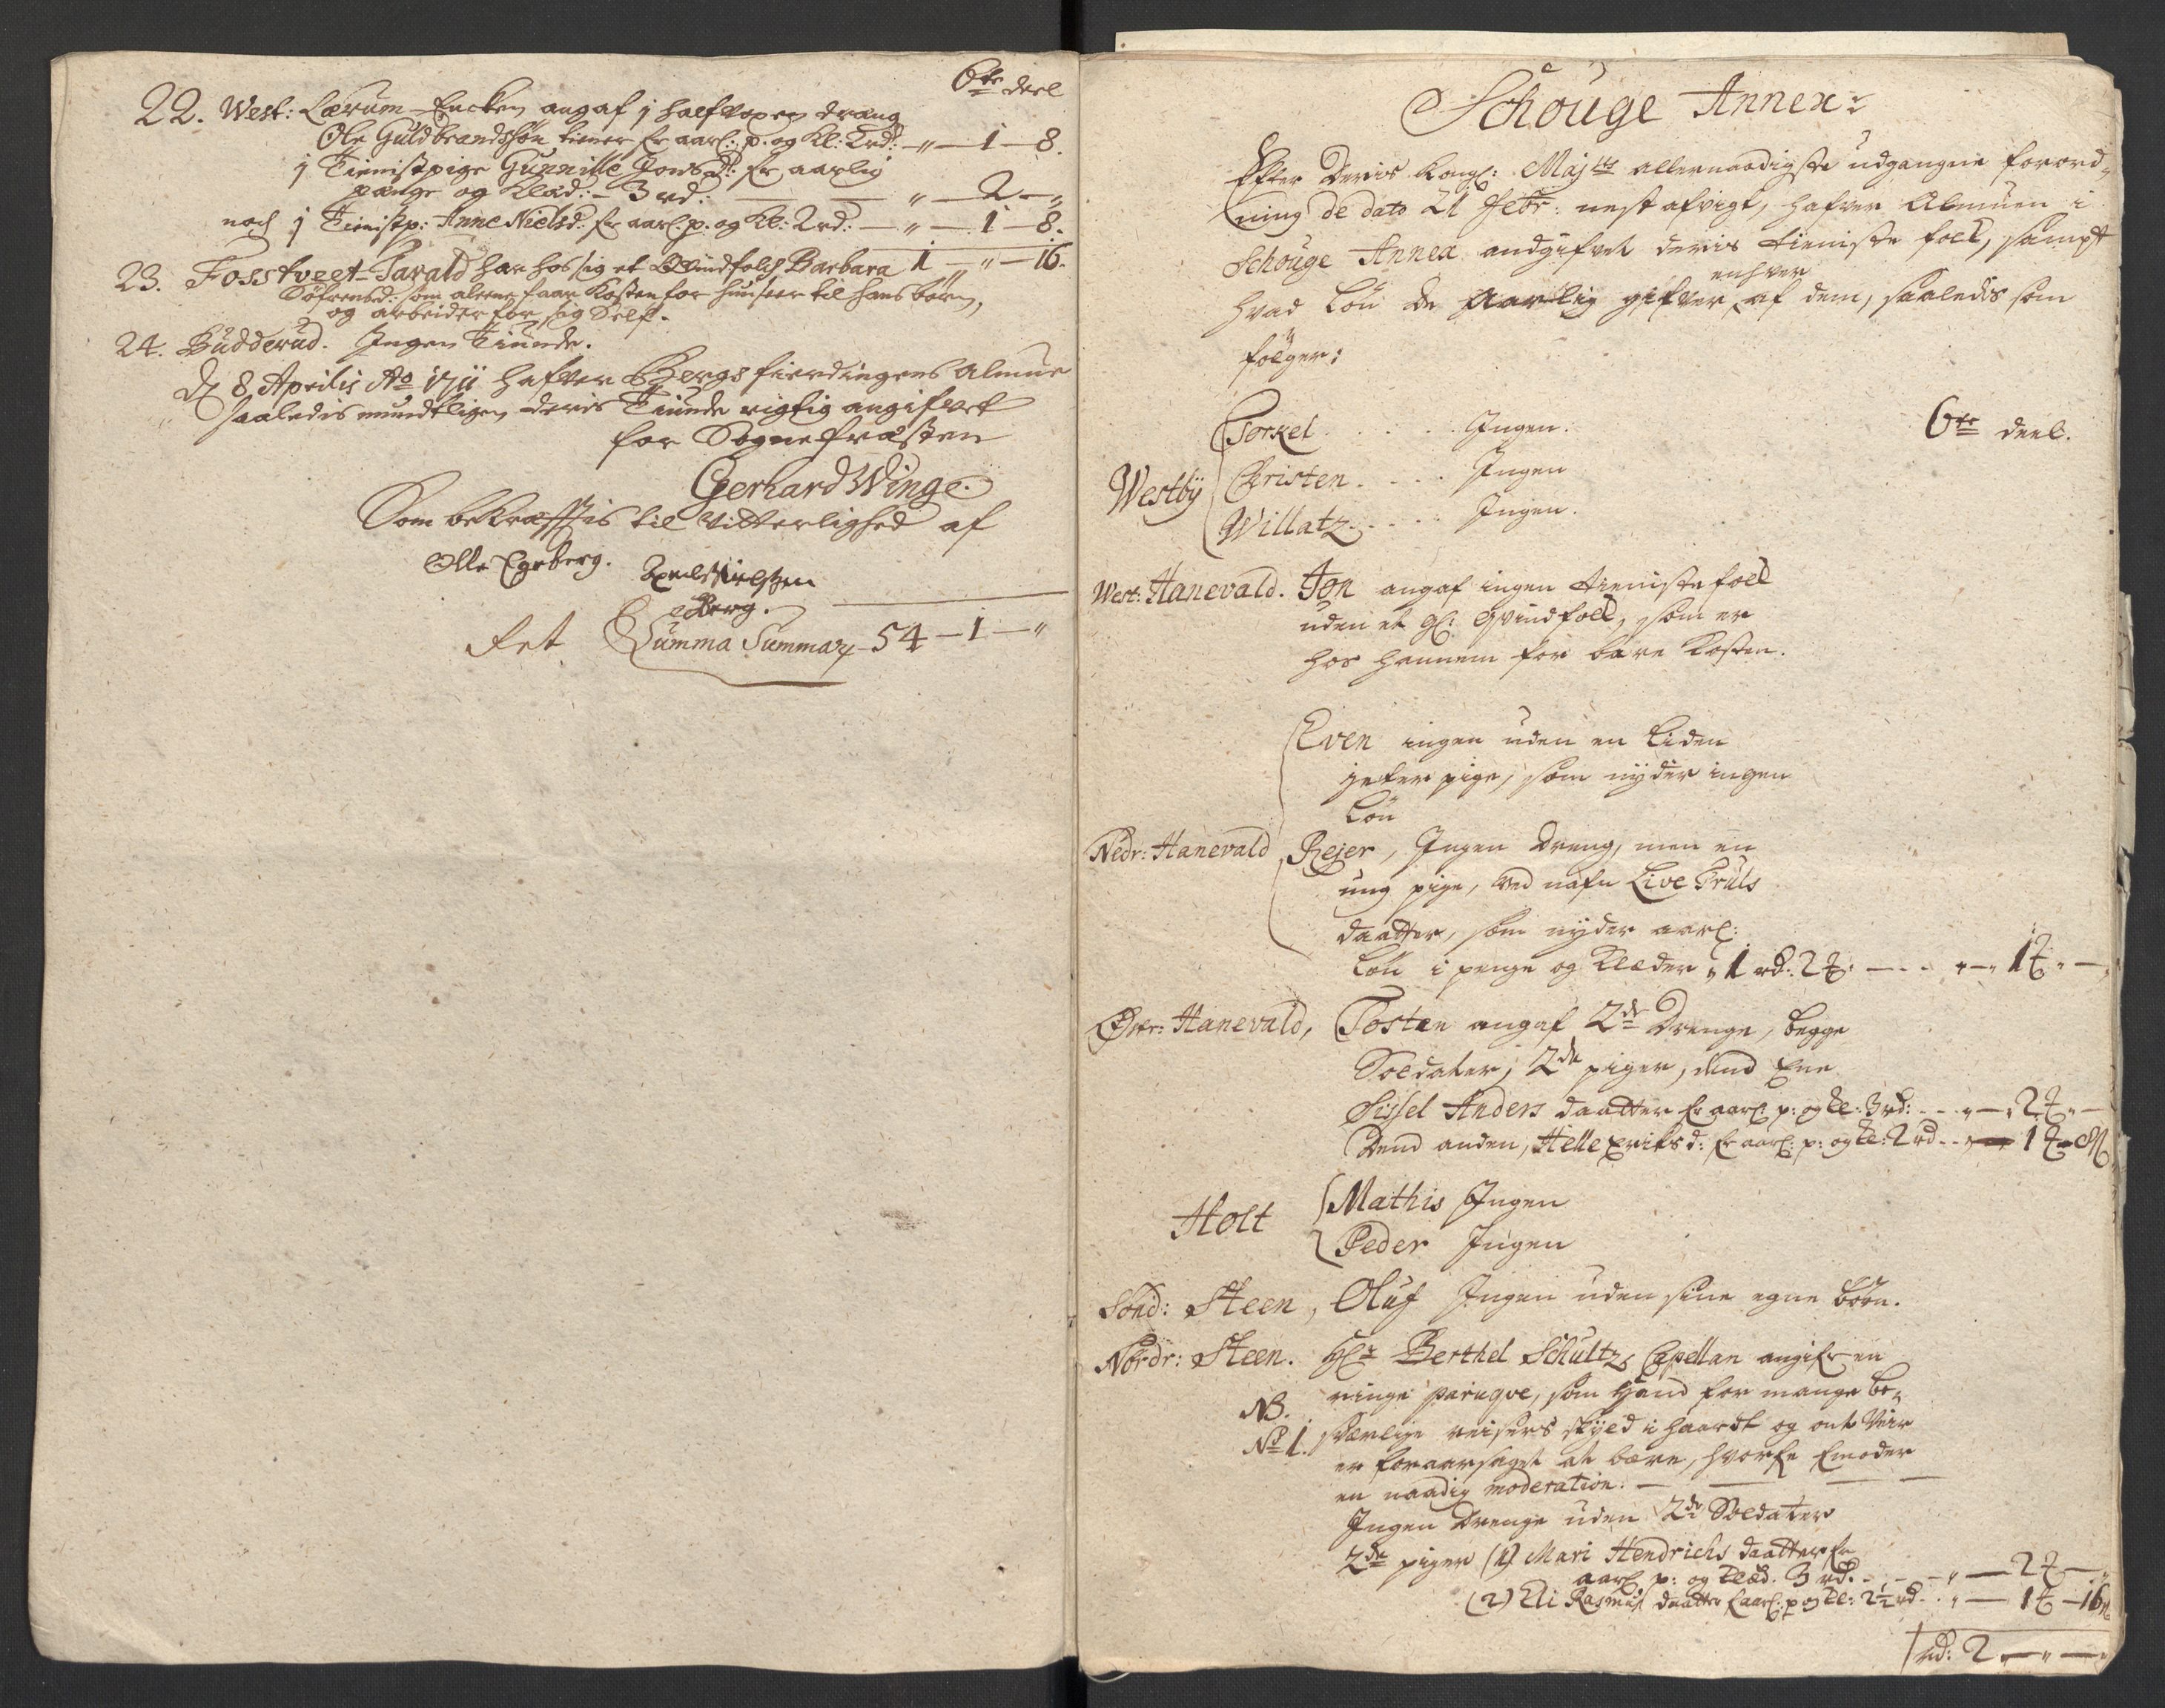 6te deel
22. West: Lærum - Encken angaf 1 halfvoxen dræng
Ole Guldbrandssøn tiener for aarl: p. og Kl: 2 rd: — " — 1 — 8.
1 Tienistpige Gunnille Jonsd: for aarlig
pænge og Klæd: - 3 rd: — " — 2 — "
noch 1 Tienistp: Anne Nielsd. for aarl. p. og Kl: 2 rd: — " — 1 — 8.
1 — " — 16.
23. Fosstveet - Tarald har hos sig et Qvindfolch Barbara
Søfrensd: som aleene faar Kosten for hun seer til hans børn,
og arbeider for sig self.
24. Budderud. Ingen Tiunde.
D 8 Aprilis Ao 1711 hafver Bergs fierdingens almue
saaledis mundtligen deris Tiunde rigtig angifvet
for Sognepræsten
Gerhard Winge.
Som bekræfftis til vitterlighed af
Olle Egeberg. Nielssen
Berg.
Let Summa Summar 54 — 1 — "
Schouge Annex:
Efter Deris Kongl: Majts allernaadigste udgangne forord-
ning de dato 21 Febr: nest afvigt, hafver Almuen i
Schouge Annex andgifvet deris tieniste folck, sampt
hvad løn de aarlig gifver enhver af dem, saaledis som
følger:
6te deel.
Torkel . . . . . Ingen.
Westby Christen . . . . Ingen
Willatz . . . . . Ingen.
West: Hanevald. Jon angaf ingen tieniste folck
uden et gl: qvindfolck, som er
hos hannem for bare Kosten.
Even ingen uden en liden
gieter pige, som nyder ingen
Løn
Nedr: Hanevald Rejer, Ingen Dreng, men en
ung pige, ved nafn Live Truls
daatter, som nyder aarl:
Løn i penge og Klæder, 1 rd: 2 — " — 1 — "
Øvr: Hanevald, Tosten angaf 2de Drenge, begge
Soldater, 2de piger, dend Ene
Sissel Anders daatter for aarl: p: og kl: 3 rd: — " — 2 — "
Dend anden, Helle Eriksd: for aarl: p: og kl: 2 rd — " — 1 — 8
Holt Mathis Ingen
Peder Ingen
Sønd: Steen, Oluf Ingen uden sine egne børn.
Nordr: Steen. Hr Berthel Schultz Capellan angifr en
ringe paruqve, som hand for mange be-
NB. No 1. sværlige reisers skyld i haardt og ont Veir
er foraarsaget at bære, hvorfor formoder
en naadig moderation: —
Ingen Drenge uden 2de Soldater
2de piger (1) Mari Hendrichs daatter for
aarl. p: og klæd. 3 rd. — " — 2 — "
(2) Eli Rasmus daatter for aarl: p og kl: 2½ rd — " — 1 — 16
rd: 2 — " — "